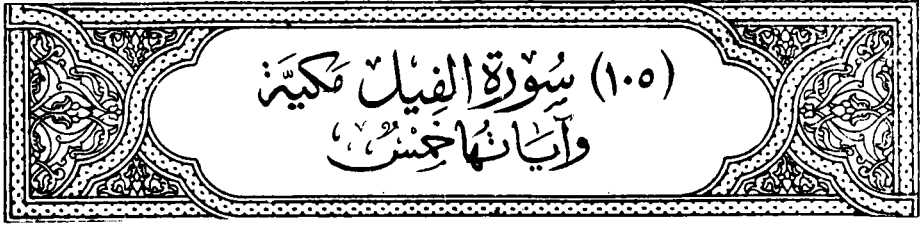 (١٠٥) سُورَةِ الفِيل مَكيَّة
وآيَاتُهَا خَمْسٌ